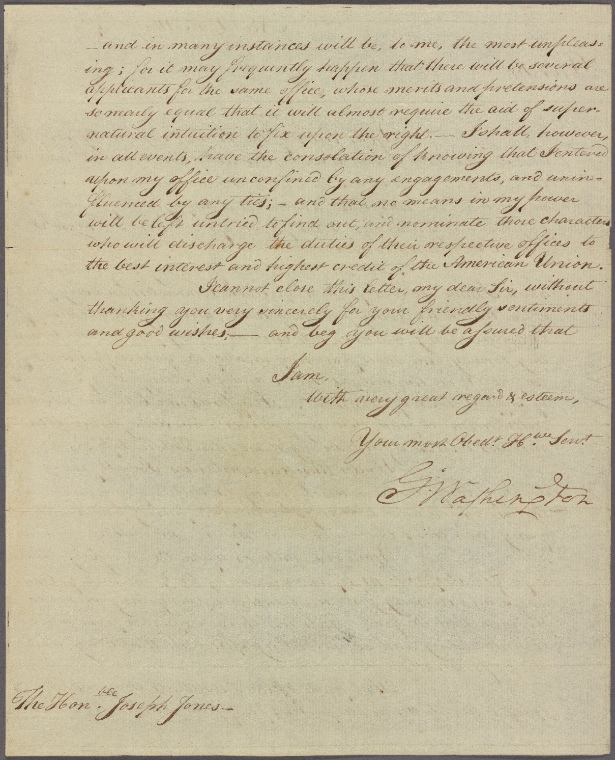 – and in many instances will be, to me, the most unpleas=
ing; for it may frequently happen that there will be several
applicants for the same office, whose merits and pretensions are
so nearly equal that it will almost require the aid of super-
natural intuition to fix upon the right. — I shall, however,
in all events, have the consolation of knowing that I entered
upon my office unconfined by any engagements, and unin=
fluenced by any ties; – and that no means in my power
will be left untried to find out, and nominate those characters
who will discharge the duties of their respective offices to
the best interest and highest credit of the American Union.
I cannot close this letter, my dear Sir, without
thanking you very sincerely for your friendly sentiments
and good wishes; — and beg you will be assured that
I am,
With very great regard & esteem,
Your most Obedt. Hble Servt
G Washington
The Honble. Joseph Jones –